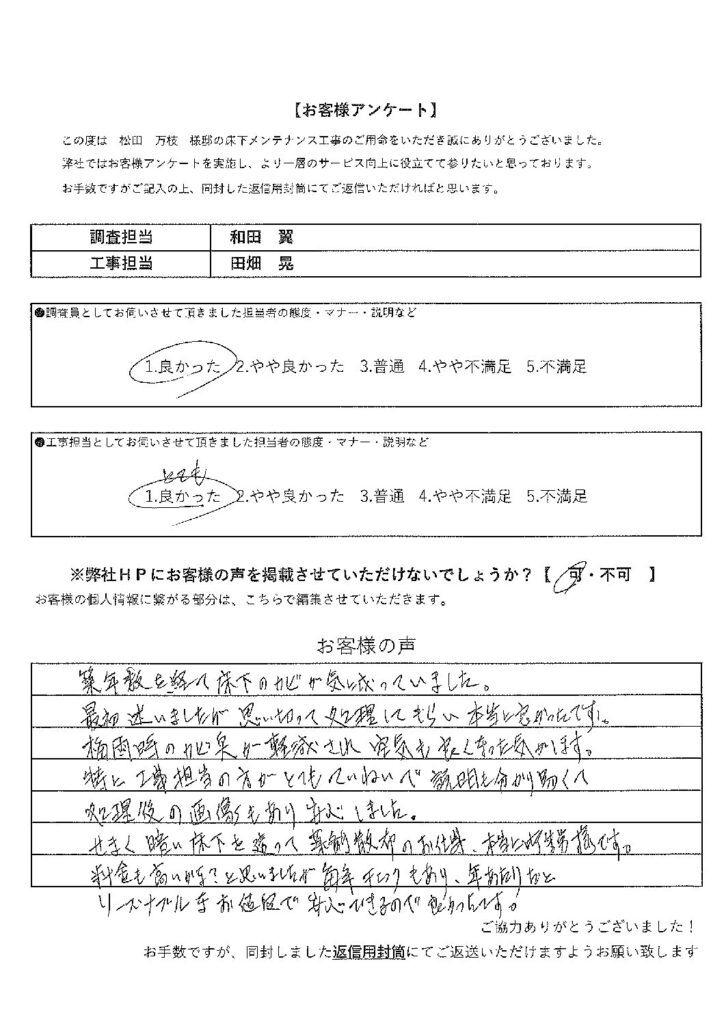 【お客様アンケート】
この度は 松田 万枝 様邸の床下メンテナンス工事のご用命をいただき誠にありがとうございました。
弊社ではお客様アンケートを実施し、より一層のサービス向上に役立てて参りたいと思っております。
お手数ですがご記入の上、同封した返信用封筒にてご返信いただければと思います。
調査担当 和田 翼
工事担当 田畑 晃
●調査員としてお伺いさせて頂きました担当者の態度・マナー・説明など
1.良かった 2.やや良かった 3.普通 4.やや不満足 5.不満足
●工事担当としてお伺いさせて頂きました担当者の態度・マナー・説明など
とても
1.良かった 2.やや良かった 3.普通 4.やや不満足 5.不満足
※弊社HPにお客様の声を掲載させていただけないでしょうか？【 可・不可 】
お客様の個人情報に繋がる部分は、こちらで編集させていただきます。
お客様の声
築年数を経て床下のカビが気に成っていました。
最初迷いましたが思い切って処理してもらい本当に良かったです。
梅雨時のカビ臭が軽減され空気も良くなった気がします。
特に工事担当の方がとてもていねいで説明も分かり易くて
処理後の画像もあり安心しました。
せまく暗い床下を這って薬剤散布のお仕事、本当に御苦労様です。
料金も高いかな?と思いましたが毎年チェックもあり、年あたりだと
リーズナブルなお値段で安心できるので良かったです。
ご協力ありがとうございました！
お手数ですが、同封しました返信用封筒にてご返送いただけますようお願い致します